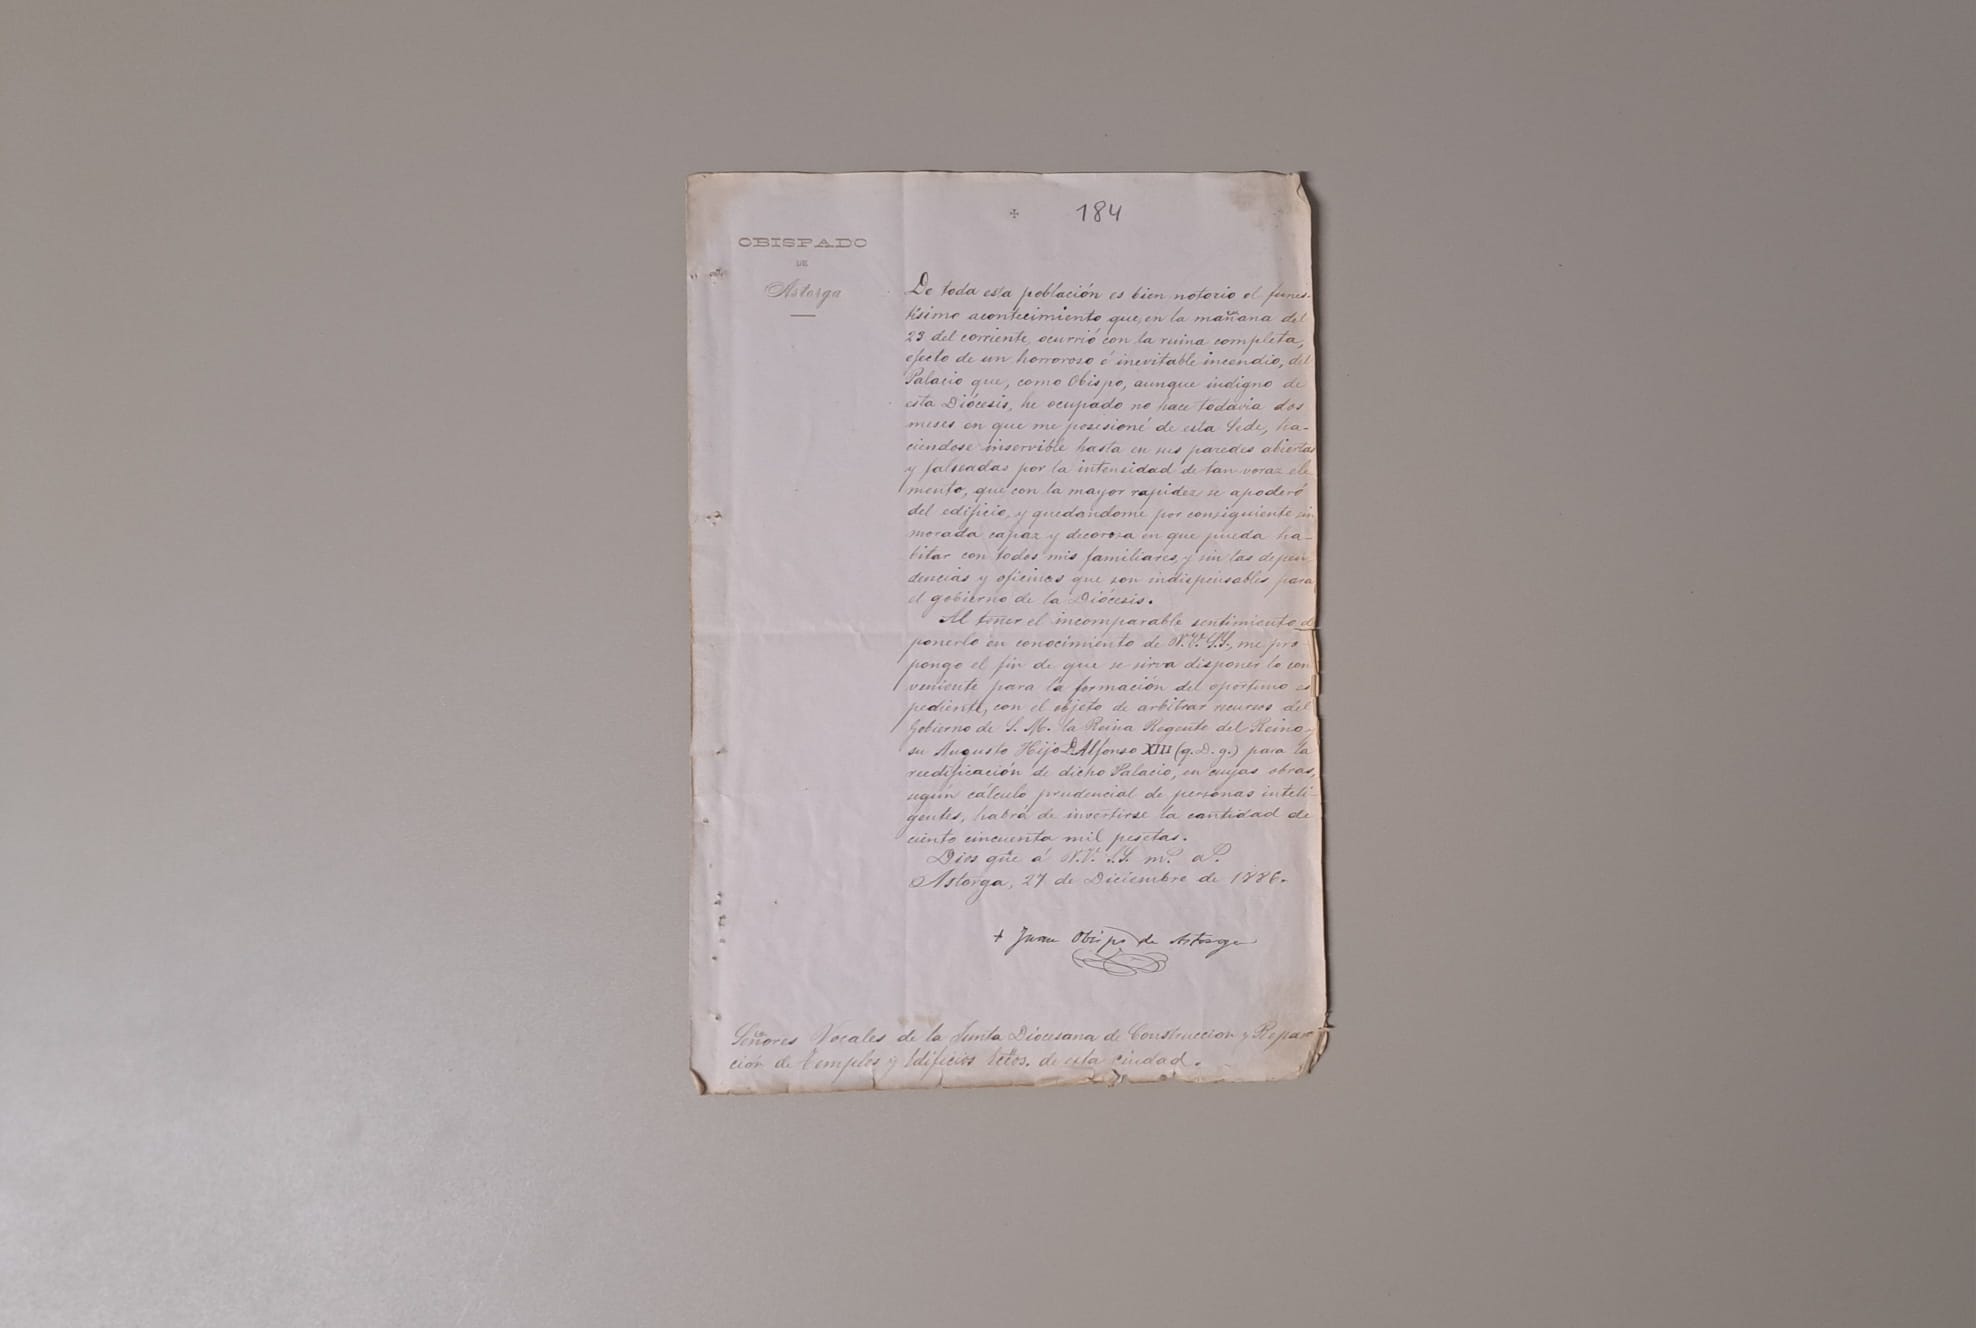 ✠ 184
OBISPADO
DE
Astorga
De toda esta población es bien notorio el funes-
tísimo acontecimiento que, en la mañana del
23 del corriente, ocurrió con la ruina completa,
efecto de un horroroso é inevitable incendio, del
Palacio que, como Obispo, aunque indigno de
esta Diócesis, he ocupado no hace todavia dos
meses en que me posesioné de esta Sede, ha-
ciendose inservible hasta en sus paredes abiertas
y falseadas por la intensidad de tan voraz ele-
mento, que con la mayor rapidez se apoderó
del edificio, y quedandome por consiguiente sin
morada capaz y decorosa en que pueda ha-
bitar con todos mis familiares, y sin las depen
dencias y oficinas que son indispensables para
el gobierno de la Diócesis.
Al tener el incomparable sentimiento d
ponerlo en conocimiento de V.V. S.S., me pro-
pongo el fin de que se sirva disponer lo con
veniente para la formación del oportuno es
pediente, con el objeto de arbitrar recursos del
Gobierno de S. M. la Reina Regente del Reino y
su Augusto Hijo D. Alfonso XIII (q. D. g.) para la
reedificación de dicho Palacio, en cuyas obras,
según cálculo prudencial de personas inteli-
gentes, habrá de invertirse la cantidad de
ciento cincuenta mil pesetas.
Dios gũe á V.V. S.S. m.ˢ a.ˢ
Astorga, 27 de Diciembre de 1886.
+ Juan Obispo de Astorga
Señores Vocales de la Junta Diocesana de Construccion y Repara
ción de templos y Edificios Ectos. de esta ciudad.